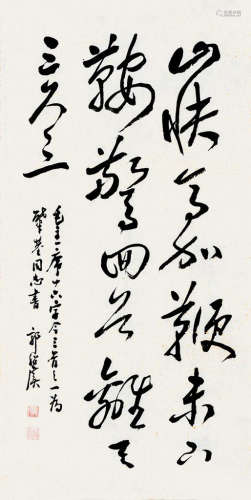 山快馬加鞭未下
鞍驚回首離天
三尺三
毛主席十六字令三首之一为
同志書 郭紹虞